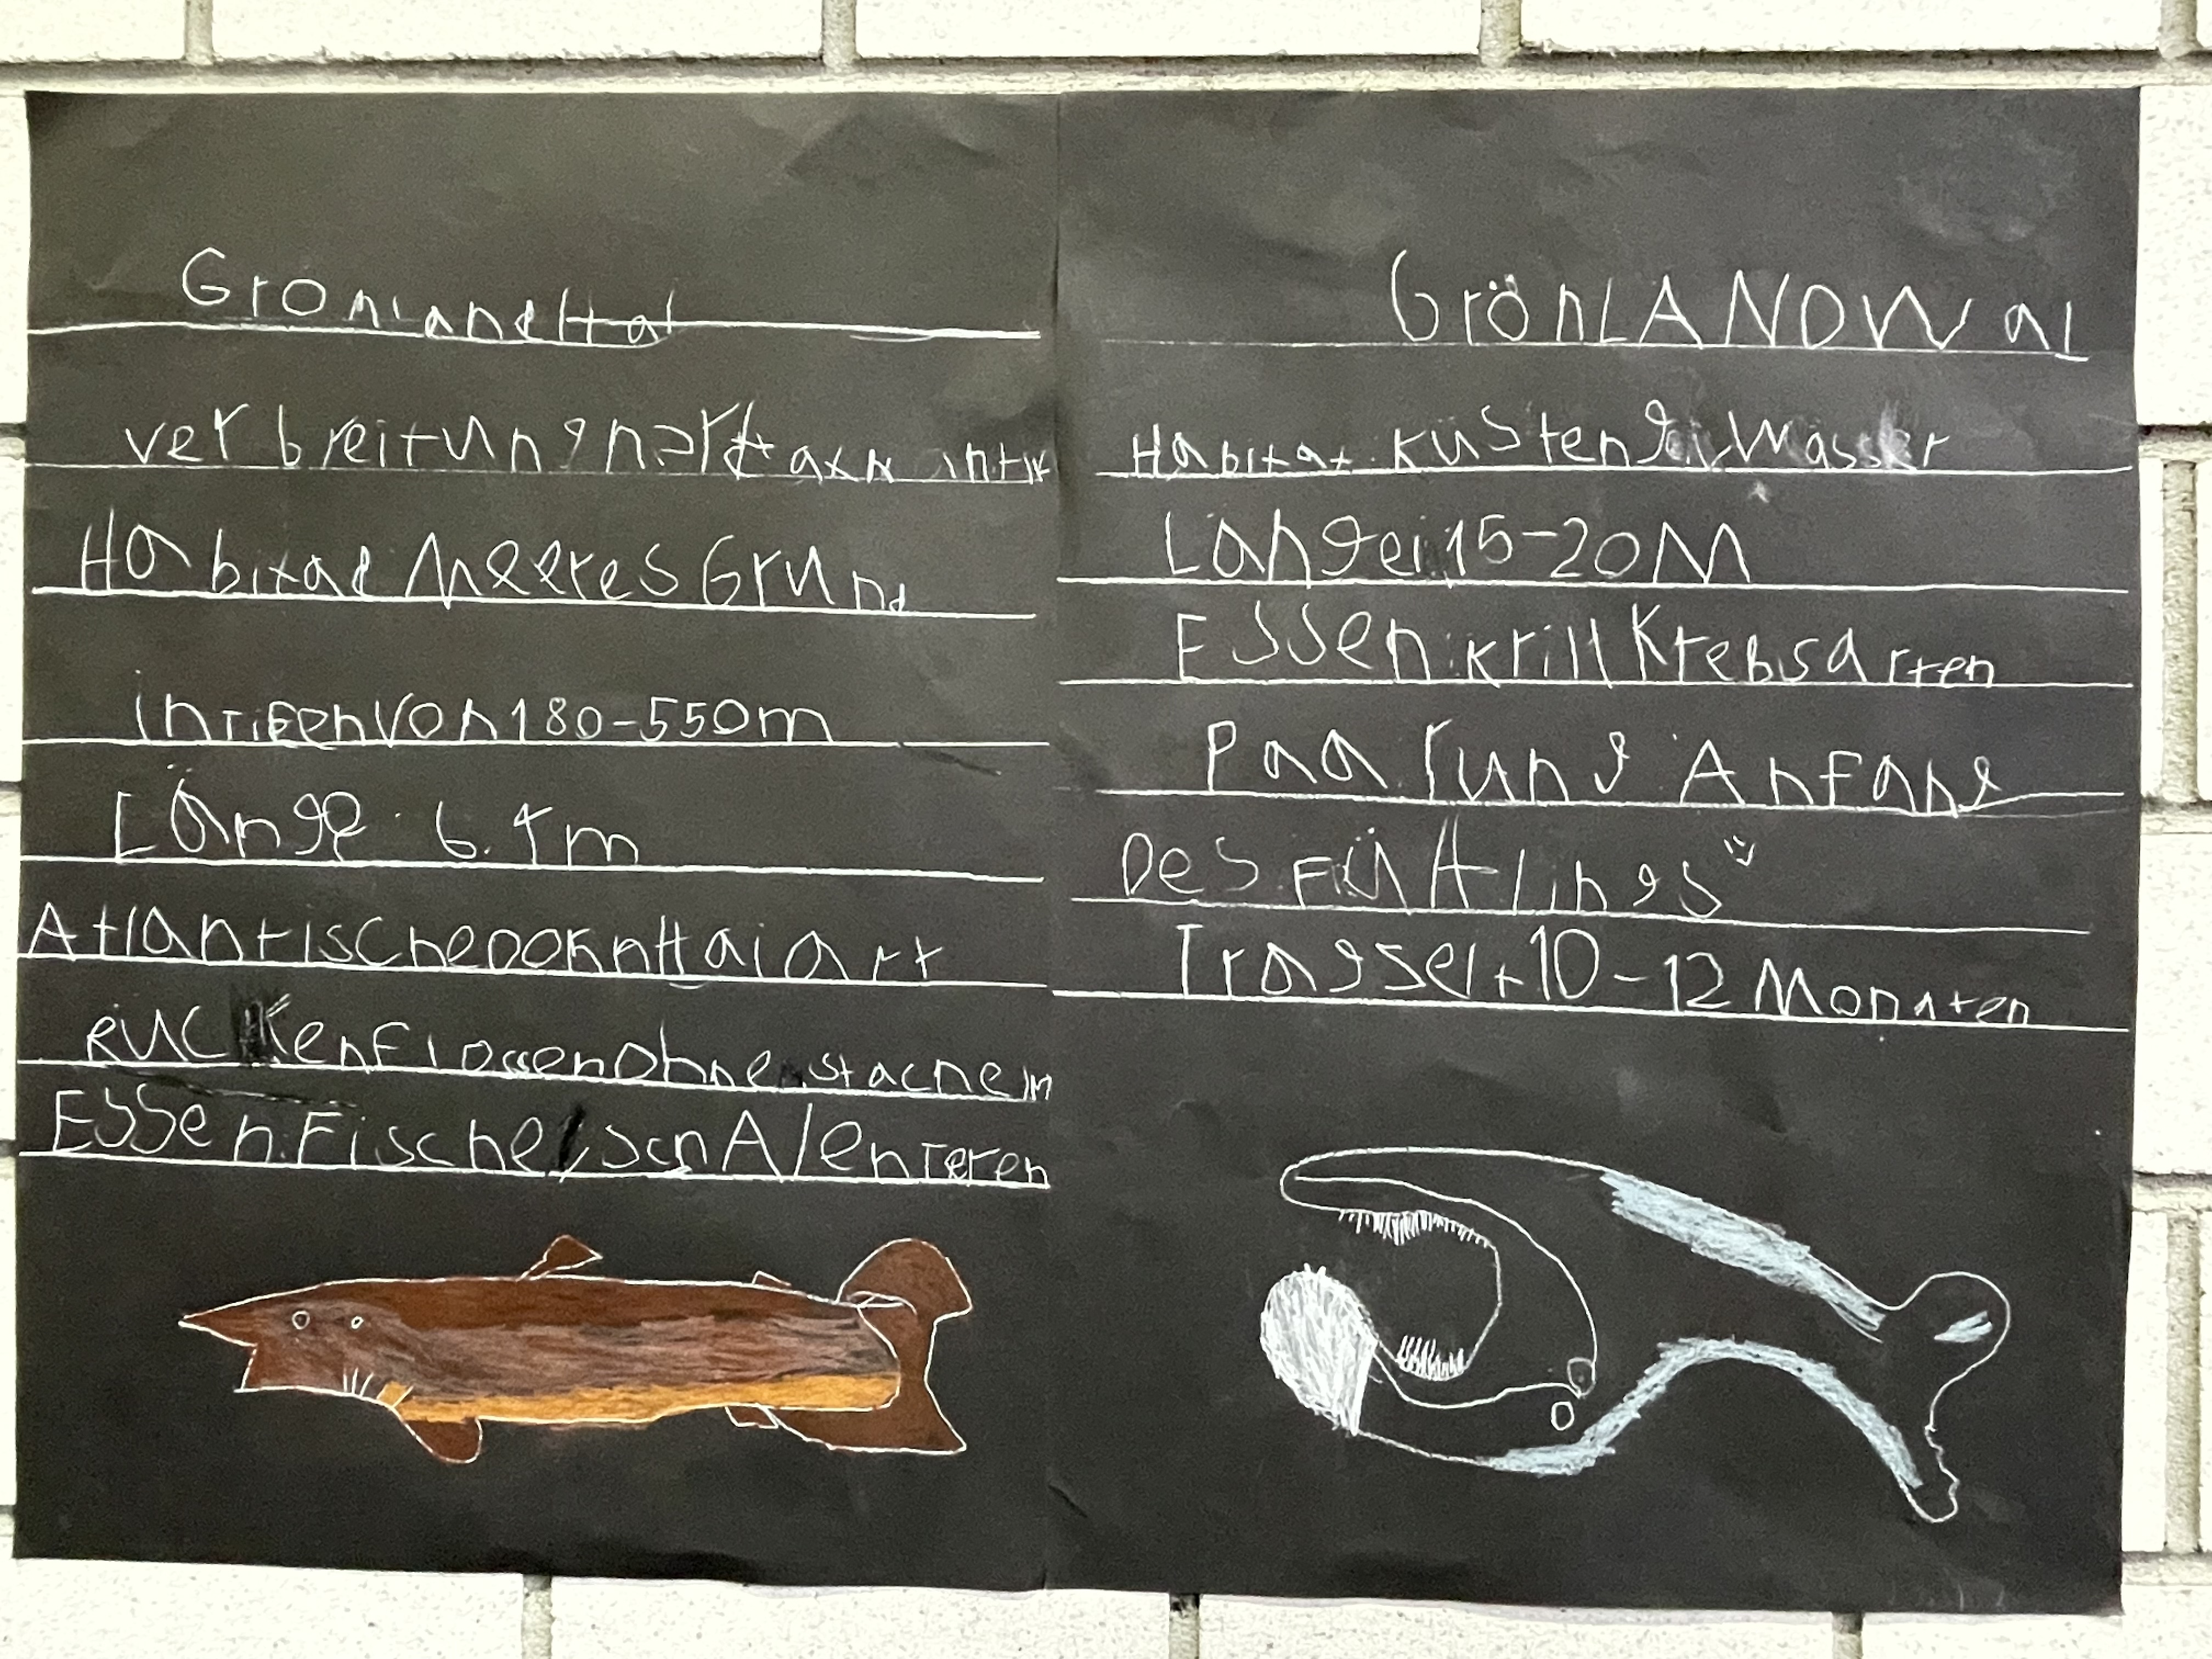 GrönlandHai
verbreitung
Habitat MeeresGrund
in TiefenVon 180-550m
Länge: 6.4m
AtlantischeDornHaiart
RücKenFlossenOhne stacheln
Essen: Fische, schAlenTeren
GrönLANDWal
Habitat: KüstengeWässer
Länge: 15-20M
Essen: Krill Krebsarten
Paarung: Anfang
Des FrüHlings
Tragseit 10-12 Monaten